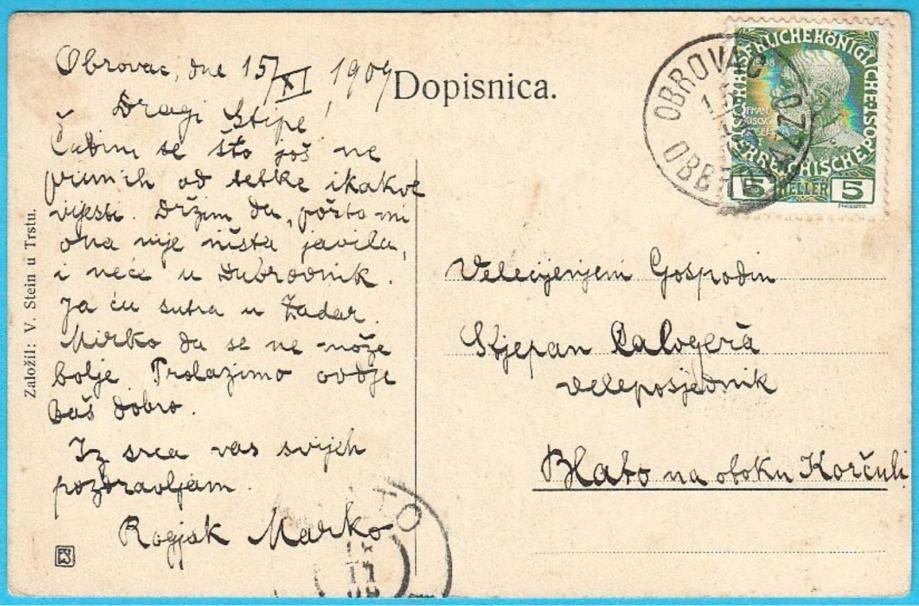 Obrovac, dne 15/XI 1909
Dopisnica.
Dragi Stipe!
Čudim se što još ne
primih od tetke ikakve
vijesti. Držim da, pošto mi
ona nije ništa javila,
i neće u Dubrovnik.
Ja ću sutra u Zadar.
Mirko da se ne može
bolje. Prolazimo ovdje
baš dobro.
Iz srca vas svijeh
pozdravljam.
Rogjak Marko
Založil: V. Stein u Trstu.
OBROVAC
OBBROVAZZO
5 HELLER 5
Velecijenjeni Gospodin
Stjepan Calogerà
veleposjednik
Blato na otoku Korčuli